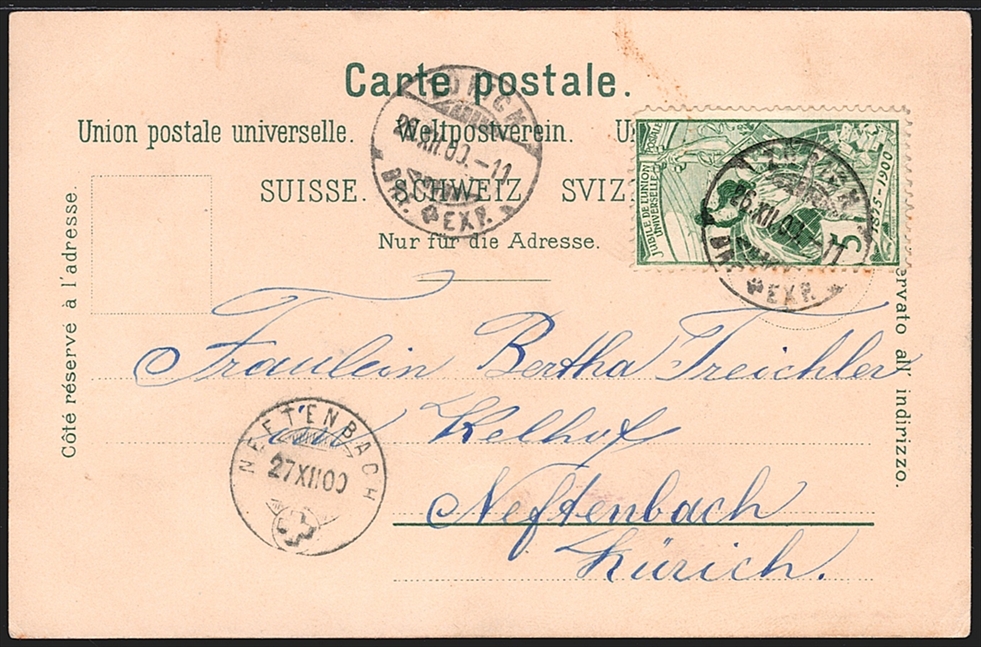 Carte postale.
Union postale universelle. Weltpostverein. U
SUISSE. SCHWEIZ SVIZ
Nur für die Adresse.
Côté réservé à l'adresse.
ervato all' indirizzo.
JUBILÉ DE L'UNION
POSTALE
UNIVERSELLE
1875-1900
5
26.XII.00.-11
BRF. EXP.
26.XII.00.-11
BRF. EXP.
Fräulein Bertha Treichler
im Kelhof
Neftenbach
Zürich.
NEFTENBACH
27 XII 00